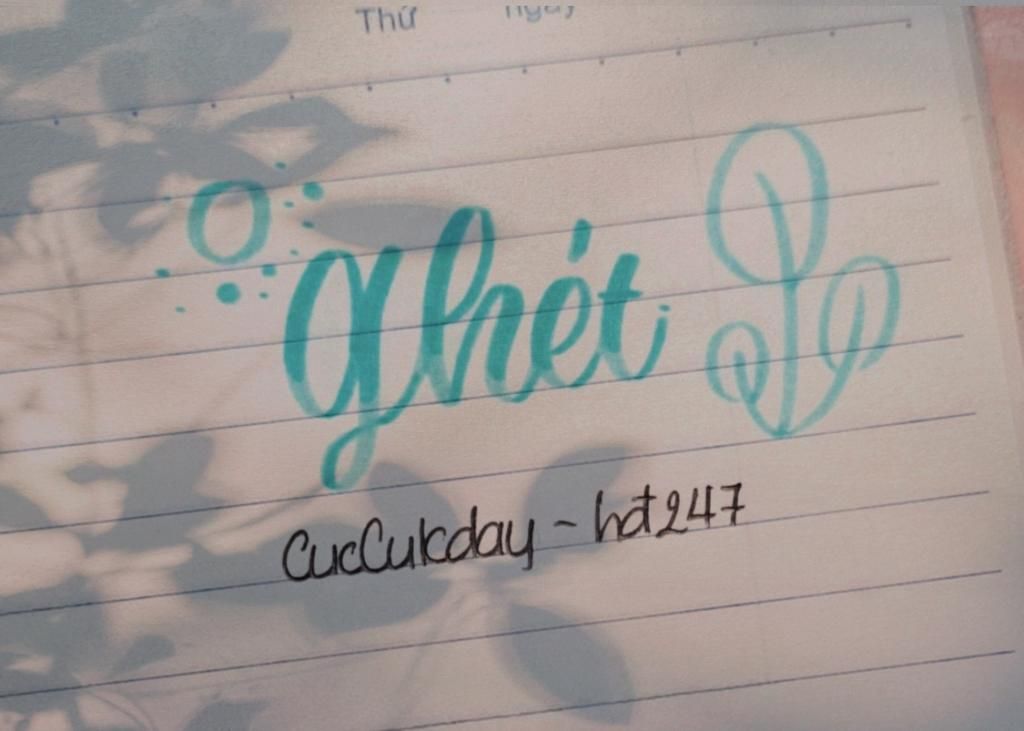 Thứ ngày
ghét
CucCukday - hot247